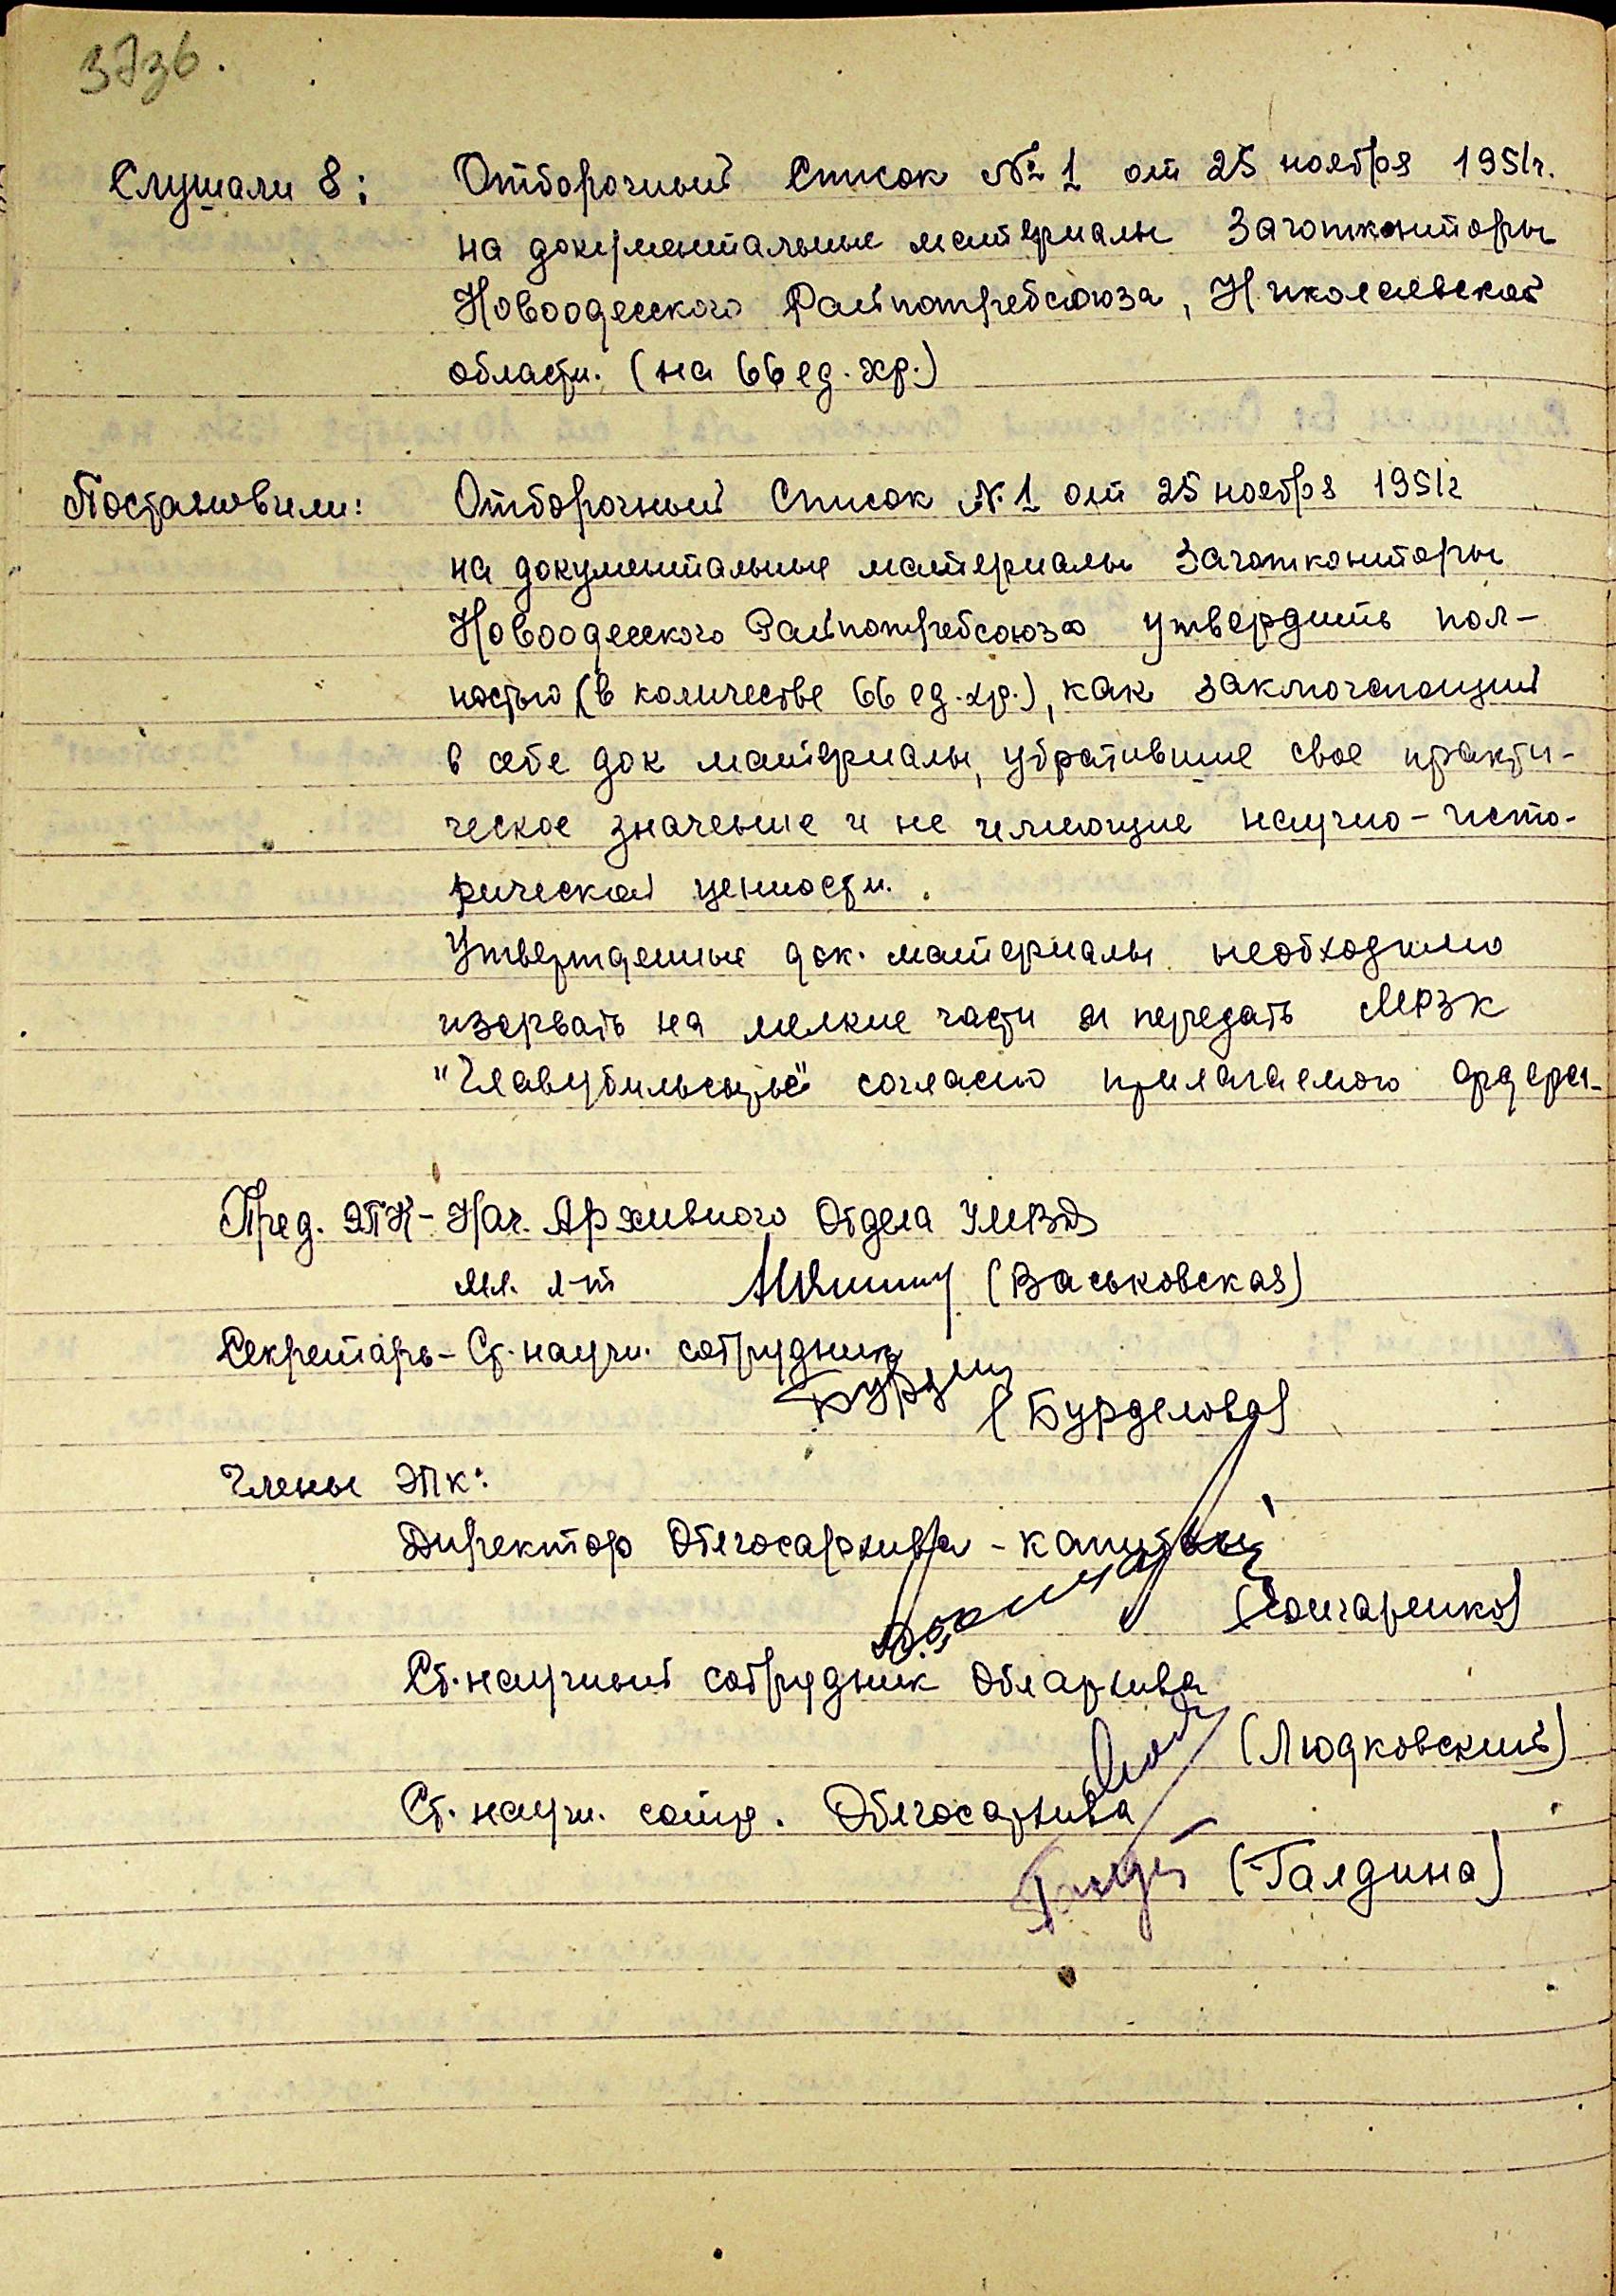 373б.
Слушали 8: Отборочный Список № 1 от 25 ноября 1951г.
на документальные материалы Заготконторы
Новоодесского Райпотребсоюза, Николаевской
области. (на 66 ед. хр.)
Постановили: Отборочный Список № 1 от 25 ноября 1951г
на документальные материалы Заготконторы
Новоодесского Райпотребсоюза утвердить пол-
ностью (в количестве 66 ед. хр.), как заключающий
в себе док материалы, утратившие свое практи-
ческое значение и не имеющие научно-исто-
рической ценности.
Утвержденные док. материалы необходимо
изорвать на мелкие части и передать МРЗК
"Главутильсырье" согласно прилагаемого ордера.
Пред. ЭПК - Нач. Архивного Отдела УМВД
мл. л-т (Васьковская)
Секретарь - Ст. научн. сотрудник
(Бурделова)
Члены ЭПК:
Директор Облгосархива - капитан
(Гончаренко)
Ст. научный сотрудник Облархива
(Людковский)
Ст. научн. сотр. Облгосархива
(Галдина)